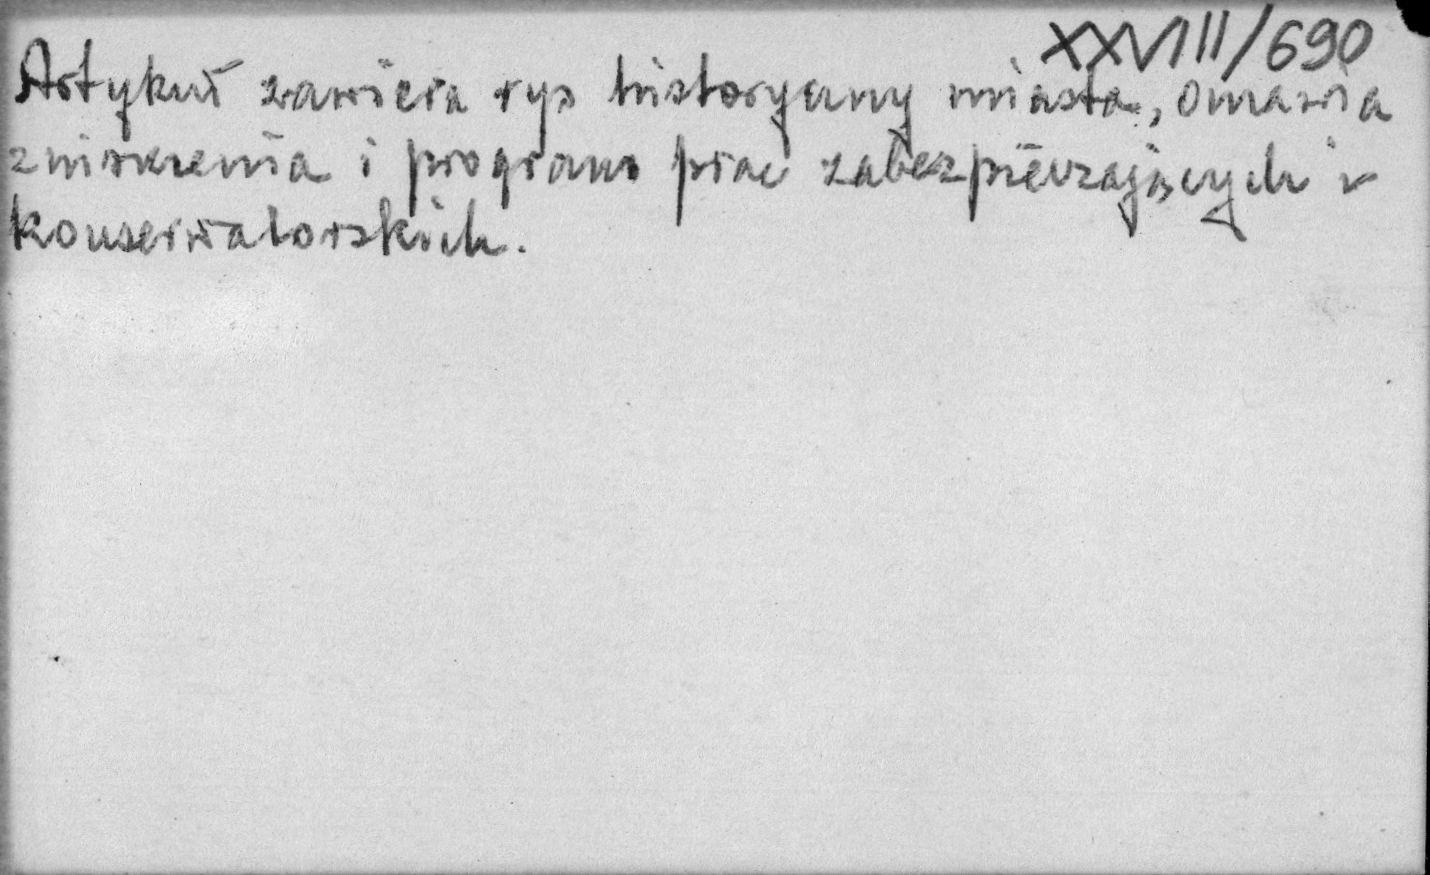 XXVIII/690
Artykuł zawiera rys historyczny miasta, omawia
zniszczenia i program prac zabezpieczających i
konserwatorskich.